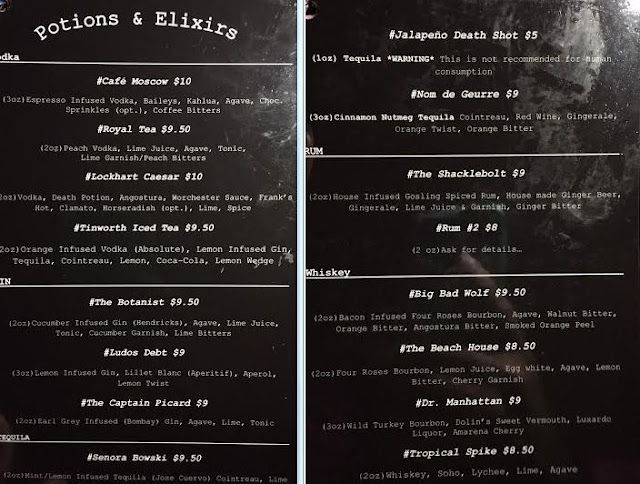 Potions & Elixirs
odka
#Café Moscow $10
(3oz)Espresso Infused Vodka, Baileys, Kahlua, Agave, Choc.
Sprinkles (opt.), Coffee Bitters
#Royal Tea $9.50
(2oz)Peach Vodka, Lime Juice, Agave, Tonic,
Lime Garnish/Peach Bitters
#Lockhart Caesar $10
2oz)Vodka, Death Potion, Angostura, Worchester Sauce, Frank's
Hot, Clamato, Horseradish (opt.), Lime, Spice
#Tinworth Iced Tea $9.50
2oz)Orange Infused Vodka (Absolute), Lemon Infused Gin,
Tequila, Cointreau, Lemon, Coca-Cola, Lemon Wedge
IN
#The Botanist $9.50
(2oz)Cucumber Infused Gin (Hendricks), Agave, Lime Juice,
Tonic, Cucumber Garnish, Lime Bitters
#Ludos Debt $9
(3oz)Lemon Infused Gin, Lillet Blanc (Aperitif), Aperol,
Lemon Twist
#The Captain Picard $9
(2oz)Earl Grey Infused (Bombay) Gin, Agave, Lime, Tonic
TEQUILA
#Senora Bowski $9.50
(2oz)Mint/Lemon Infused Tequila (Jose Cuervo) Cointreau, Lime
#Jalapeño Death Shot $5
(1oz) Tequila *WARNING* This is not recommended for human
consumption
#Nom de Geurre $9
(3oz)Cinnamon Nutmeg Tequila Cointreau, Red Wine, Gingerale,
Orange Twist, Orange Bitter
RUM
#The Shacklebolt $9
(2oz)House Infused Gosling Spiced Rum, House made Ginger Beer,
Gingerale, Lime Juice & Garnish, Ginger Bitter
#Rum #2 $8
(2 oz)Ask for details…
Whiskey
#Big Bad Wolf $9.50
(2oz)Bacon Infused Four Roses Bourbon, Agave, Walnut Bitter,
Orange Bitter, Angostura Bitter, Smoked Orange Peel
#The Beach House $8.50
(2oz)Four Roses Bourbon, Lemon Juice, Egg white, Agave, Lemon
Bitter, Cherry Garnish
#Dr. Manhattan $9
(3oz)Wild Turkey Bourbon, Dolin's Sweet Vermouth, Luxardo
Liquor, Amarena Cherry
#Tropical Spike $8.50
(2oz)Whiskey, Soho, Lychee, Lime, Agave